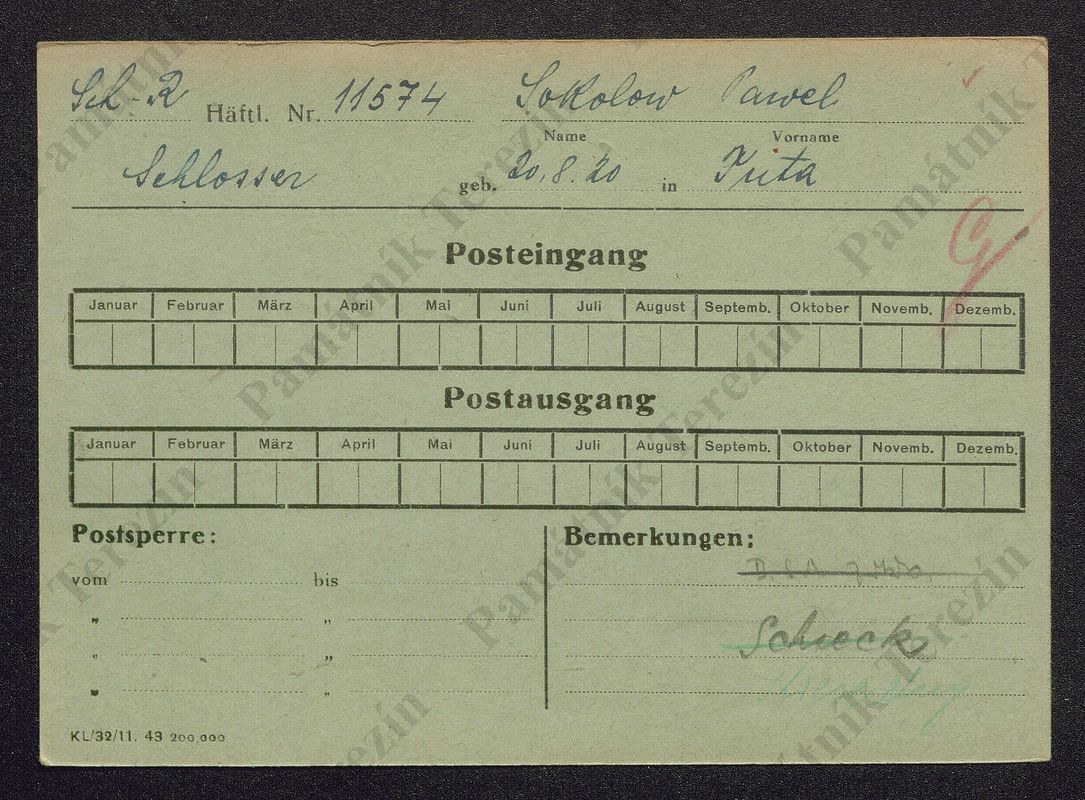 Sch-R Häftl. Nr. 11574 Sokolow Pawel
Name Vorname
Schlosser geb. 20.8.20 in Juta
Posteingang
Januar Februar März April Mai Juni Juli August Septemb. Oktober Novemb. Dezemb.
Postausgang
Januar Februar März April Mai Juni Juli August Septemb. Oktober Novemb. Dezemb.
Postsperre: Bemerkungen:
vom bis
" "
Schieck
" "
" "
KL/32/11. 43 200,000
Památník Terezín